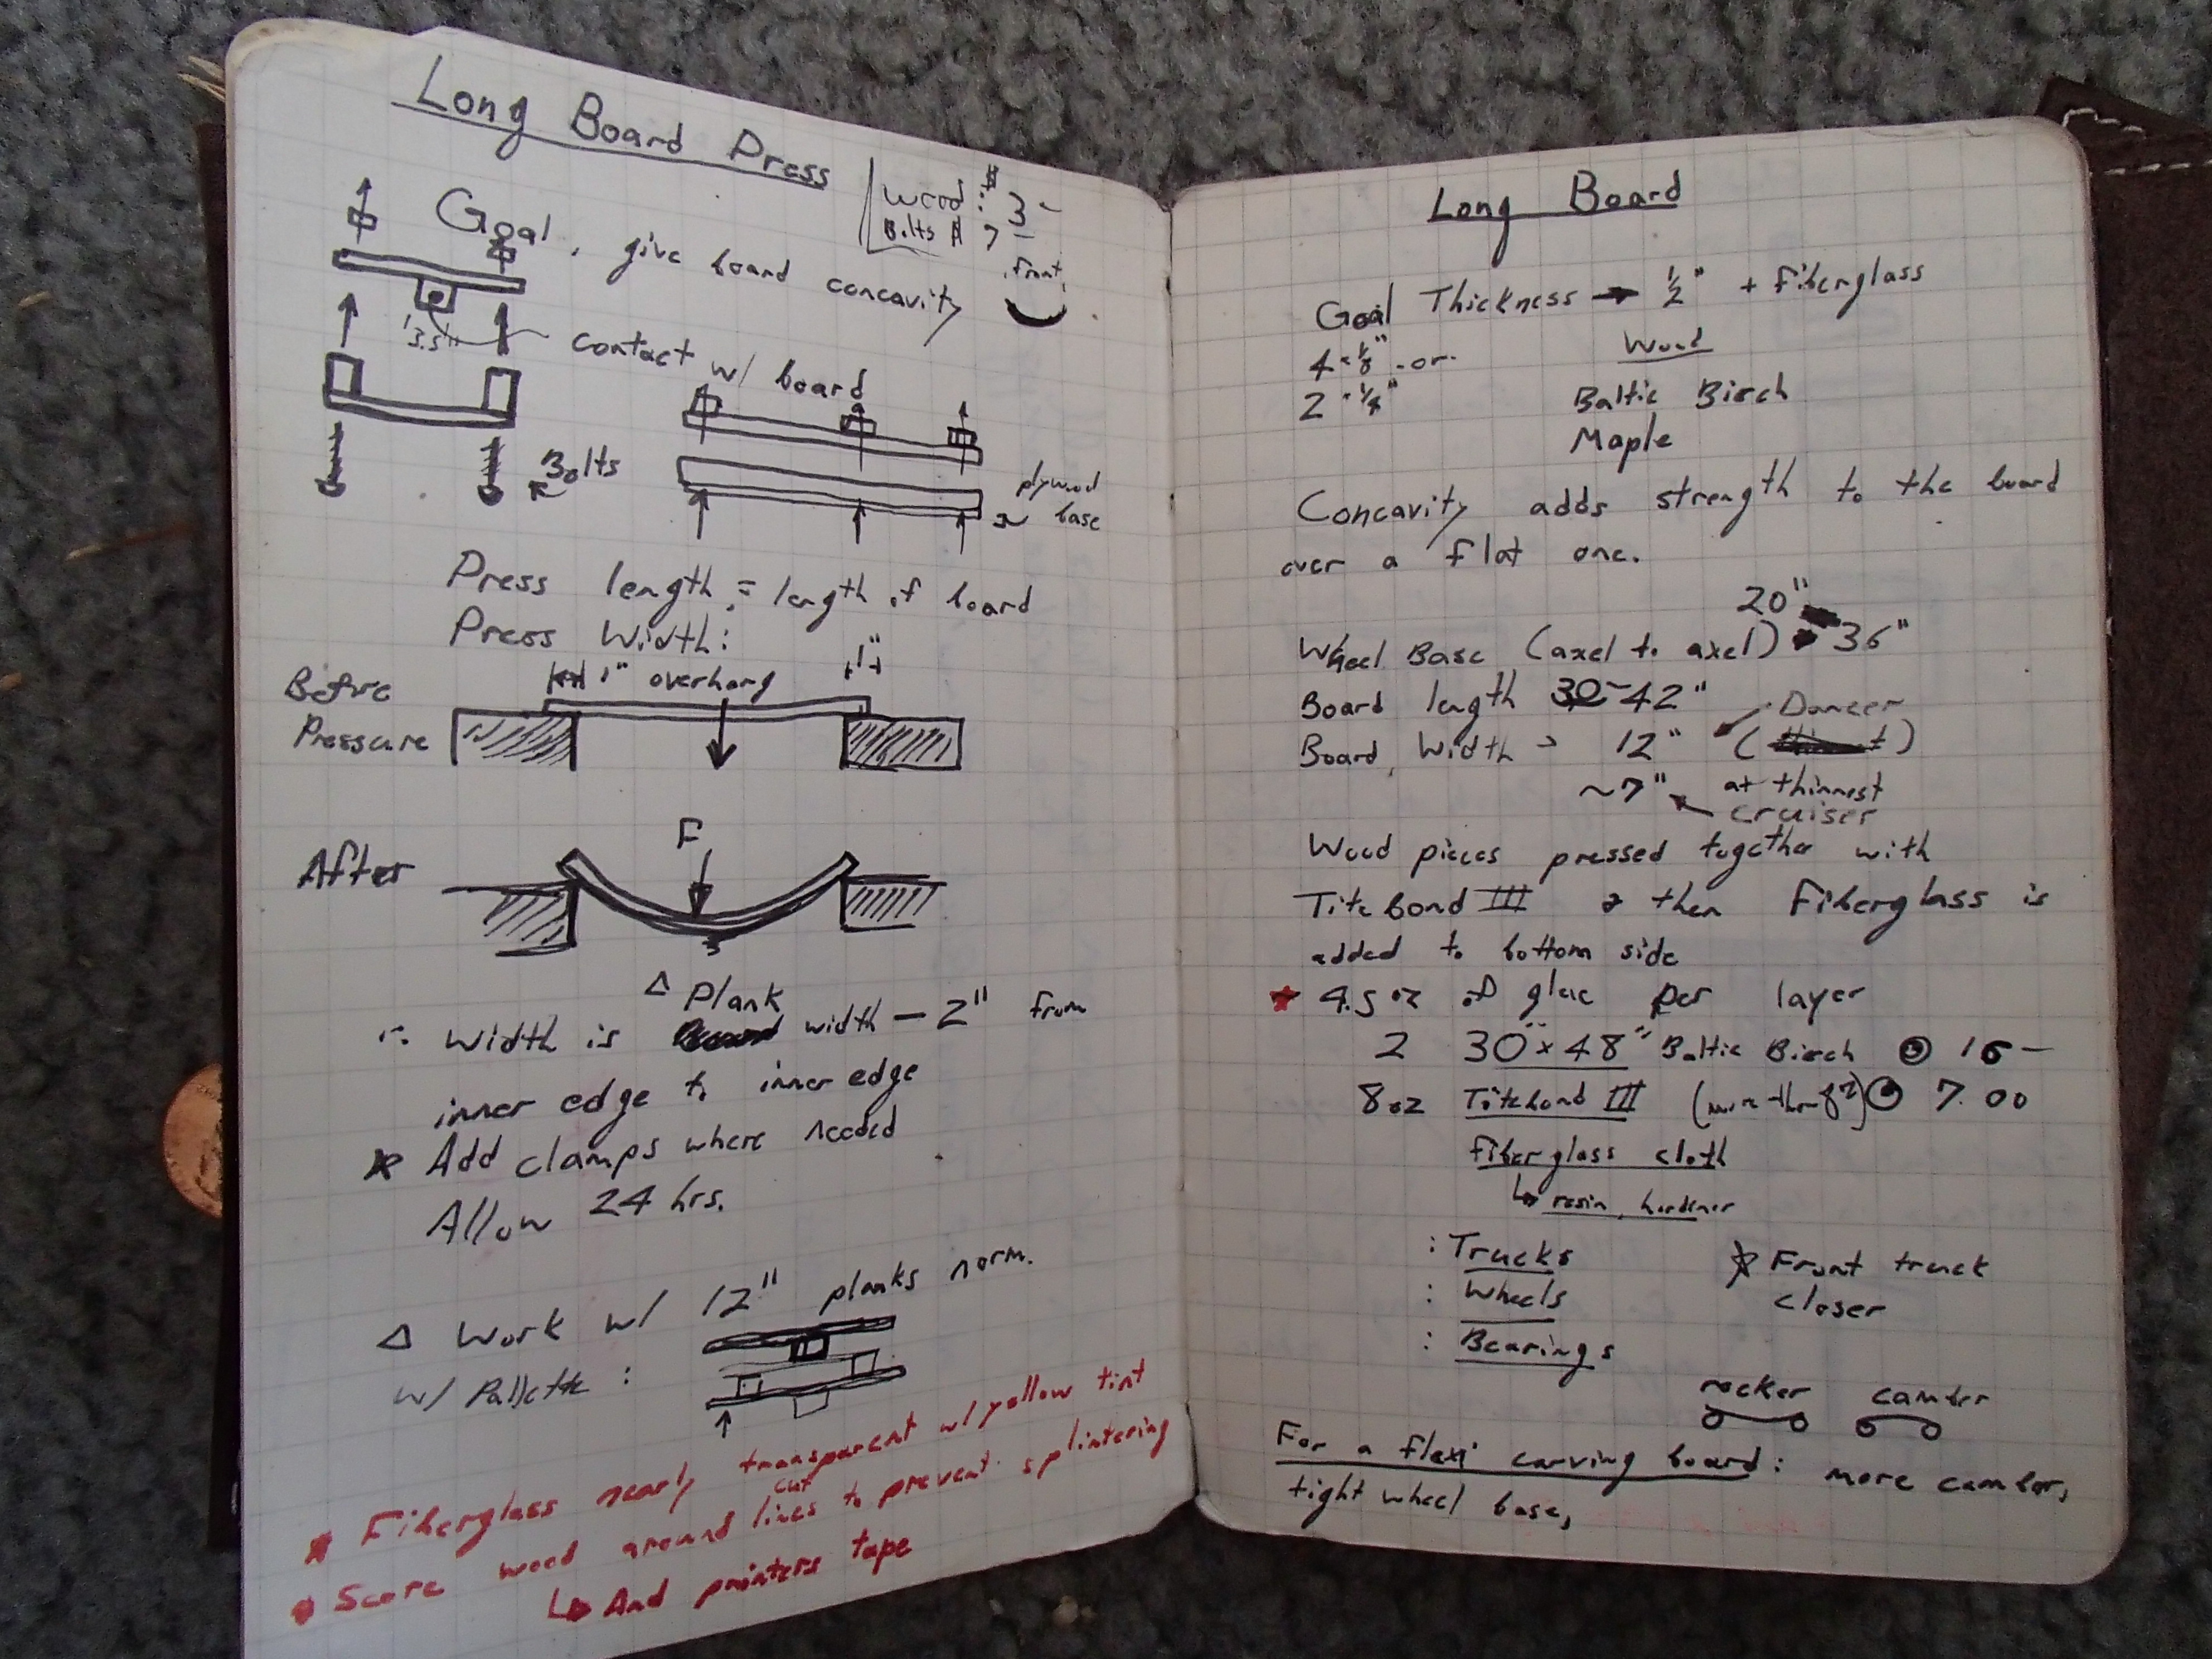 Long Board Press
Wood : $ 3-
Bolts $ 7-
Goal, give board concavity
front
1.5"
contact w/ board
Bolts
plywood
base
Press length = length of board
Press Width:
Before
Pressure
1" overhang
1"
After
F
Δ Plank
∴ Width is width - 2" from
inner edge to inner edge
* Add clamps where needed
Allow 24 hrs.
Δ Work w/ 12" planks norm.
w/ Pallette :
* Fiberglass nearly transparent w/ yellow tint
* Score wood around cut lines to prevent splintering
↳ And painters tape
Long Board
Goal Thickness → 1/2" + Fiberglass
4 - 1/8" - or -
2 - 1/4"
Wood
Baltic Birch
Maple
Concavity adds strength to the board
over a flat one.
20"
Wheel Base (axel to axel) 36"
Board length 30-42"
Board Width > 12" Dancer
~7" at thinnest
cruiser
Wood pieces pressed together with
Titebond III & then Fiberglass is
added to bottom side
* 4.5 oz of glue per layer
2 30" x 48" Baltic Birch @ 16-
8 oz Titebond III @ 7.00
Fiberglass cloth
↳ resin, hardener
: Trucks
: Wheels
: Bearings
* Front truck
closer
rocker camber
For a flexi carving board: more camber,
tight wheel base,